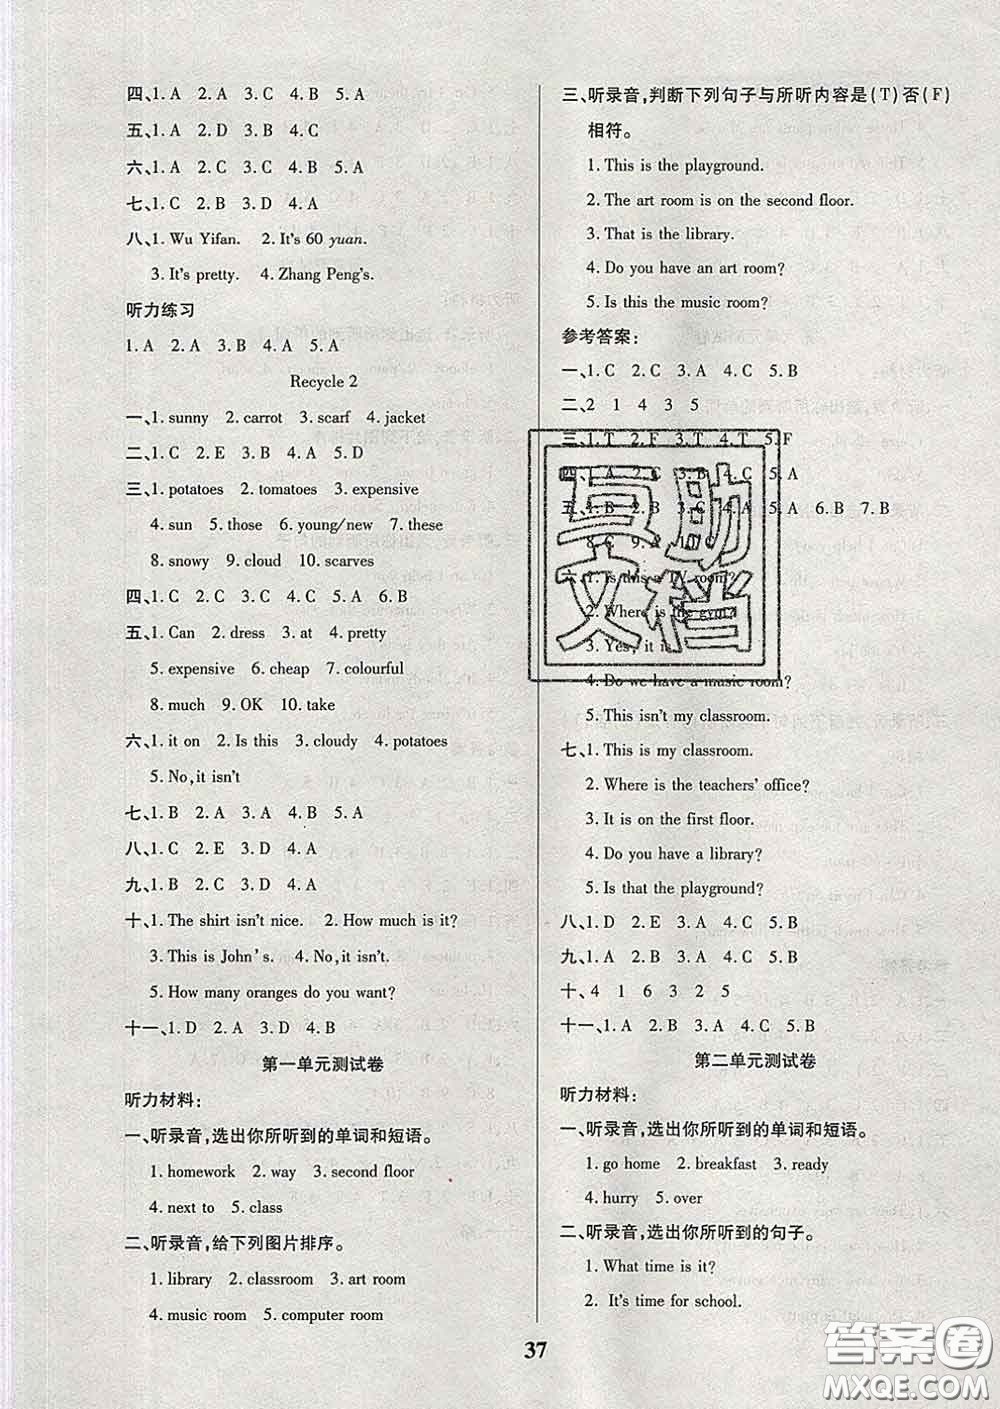 四、1. A 2. A 3. C 4. B 5. A
五、1. A 2. D 3. B 4. C
六、1. A 2. C 3. C 4. B 5. A
七、1. C 2. B 3. D 4. A
八、1. Wu Yifan. 2. It's 60 yuan.
3. It's pretty. 4. Zhang Peng's.
听力练习
1. A 2. A 3. B 4. A 5. A
Recycle 2
一、1. sunny 2. carrot 3. scarf 4. jacket
二、1. C 2. E 3. B 4. A 5. D
三、1. potatoes 2. tomatoes 3. expensive
4. sun 5. those 6. young/new 7. these
8. snowy 9. cloud 10. scarves
四、1. C 2. C 3. B 4. C 5. A 6. B
五、1. Can 2. dress 3. at 4. pretty
5. expensive 6. cheap 7. colourful
8. much 9. OK 10. take
六、1. it on 2. Is this 3. cloudy 4. potatoes
5. No,it isn't
七、1. B 2. A 3. A 4. B 5. A
八、1. C 2. E 3. D 4. A 5. B
九、1. B 2. C 3. D 4. A
十、1. The shirt isn't nice. 2. How much is it?
3. This is John's. 4. No,it isn't.
5. How many oranges do you want?
十一、1. D 2. A 3. D 4. B
第一单元测试卷
听力材料：
一、听录音,选出你所听到的单词和短语。
1. homework 2. way 3. second floor
4. next to 5. class
二、听录音,给下列图片排序。
1. library 2. classroom 3. art room
4. music room 5. computer room
三、听录音,判断下列句子与所听内容是(T)否(F)
相符。
1. This is the playground.
2. The art room is on the second floor.
3. That is the library.
4. Do you have an art room?
5. Is this the music room?
参考答案：
一、1. C 2. C 3. A 4. C 5. B
二、2 1 4 3 5
三、1. T 2. F 3. T 4. T 5. F
四、1. A 2. C 3. B 4. C 5. A
五、1. B 2. B 3. C 4. A 5. A 6. B 7. B
8. C 9. A 10. C
六、1. Is this a TV room?
2. Where is the gym?
3. Yes, it is.
4. Do we have a music room?
5. This isn't my classroom.
七、1. This is my classroom.
2. Where is the teachers' office?
3. It is on the first floor.
4. Do you have a library?
5. Is that the playground?
八、1. D 2. E 3. A 4. C 5. B
九、1. C 2. A 3. A 4. C 5. B
十、4 1 6 3 2 5
十一、1. A 2. B 3. A 4. C 5. B
第二单元测试卷
听力材料：
一、听录音,选出你所听到的单词和短语。
1. go home 2. breakfast 3. ready
4. hurry 5. over
二、听录音,选出你所听到的句子。
1. What time is it?
2. It's time for school.
37
互助
文档
答案圈
MXQE.COM